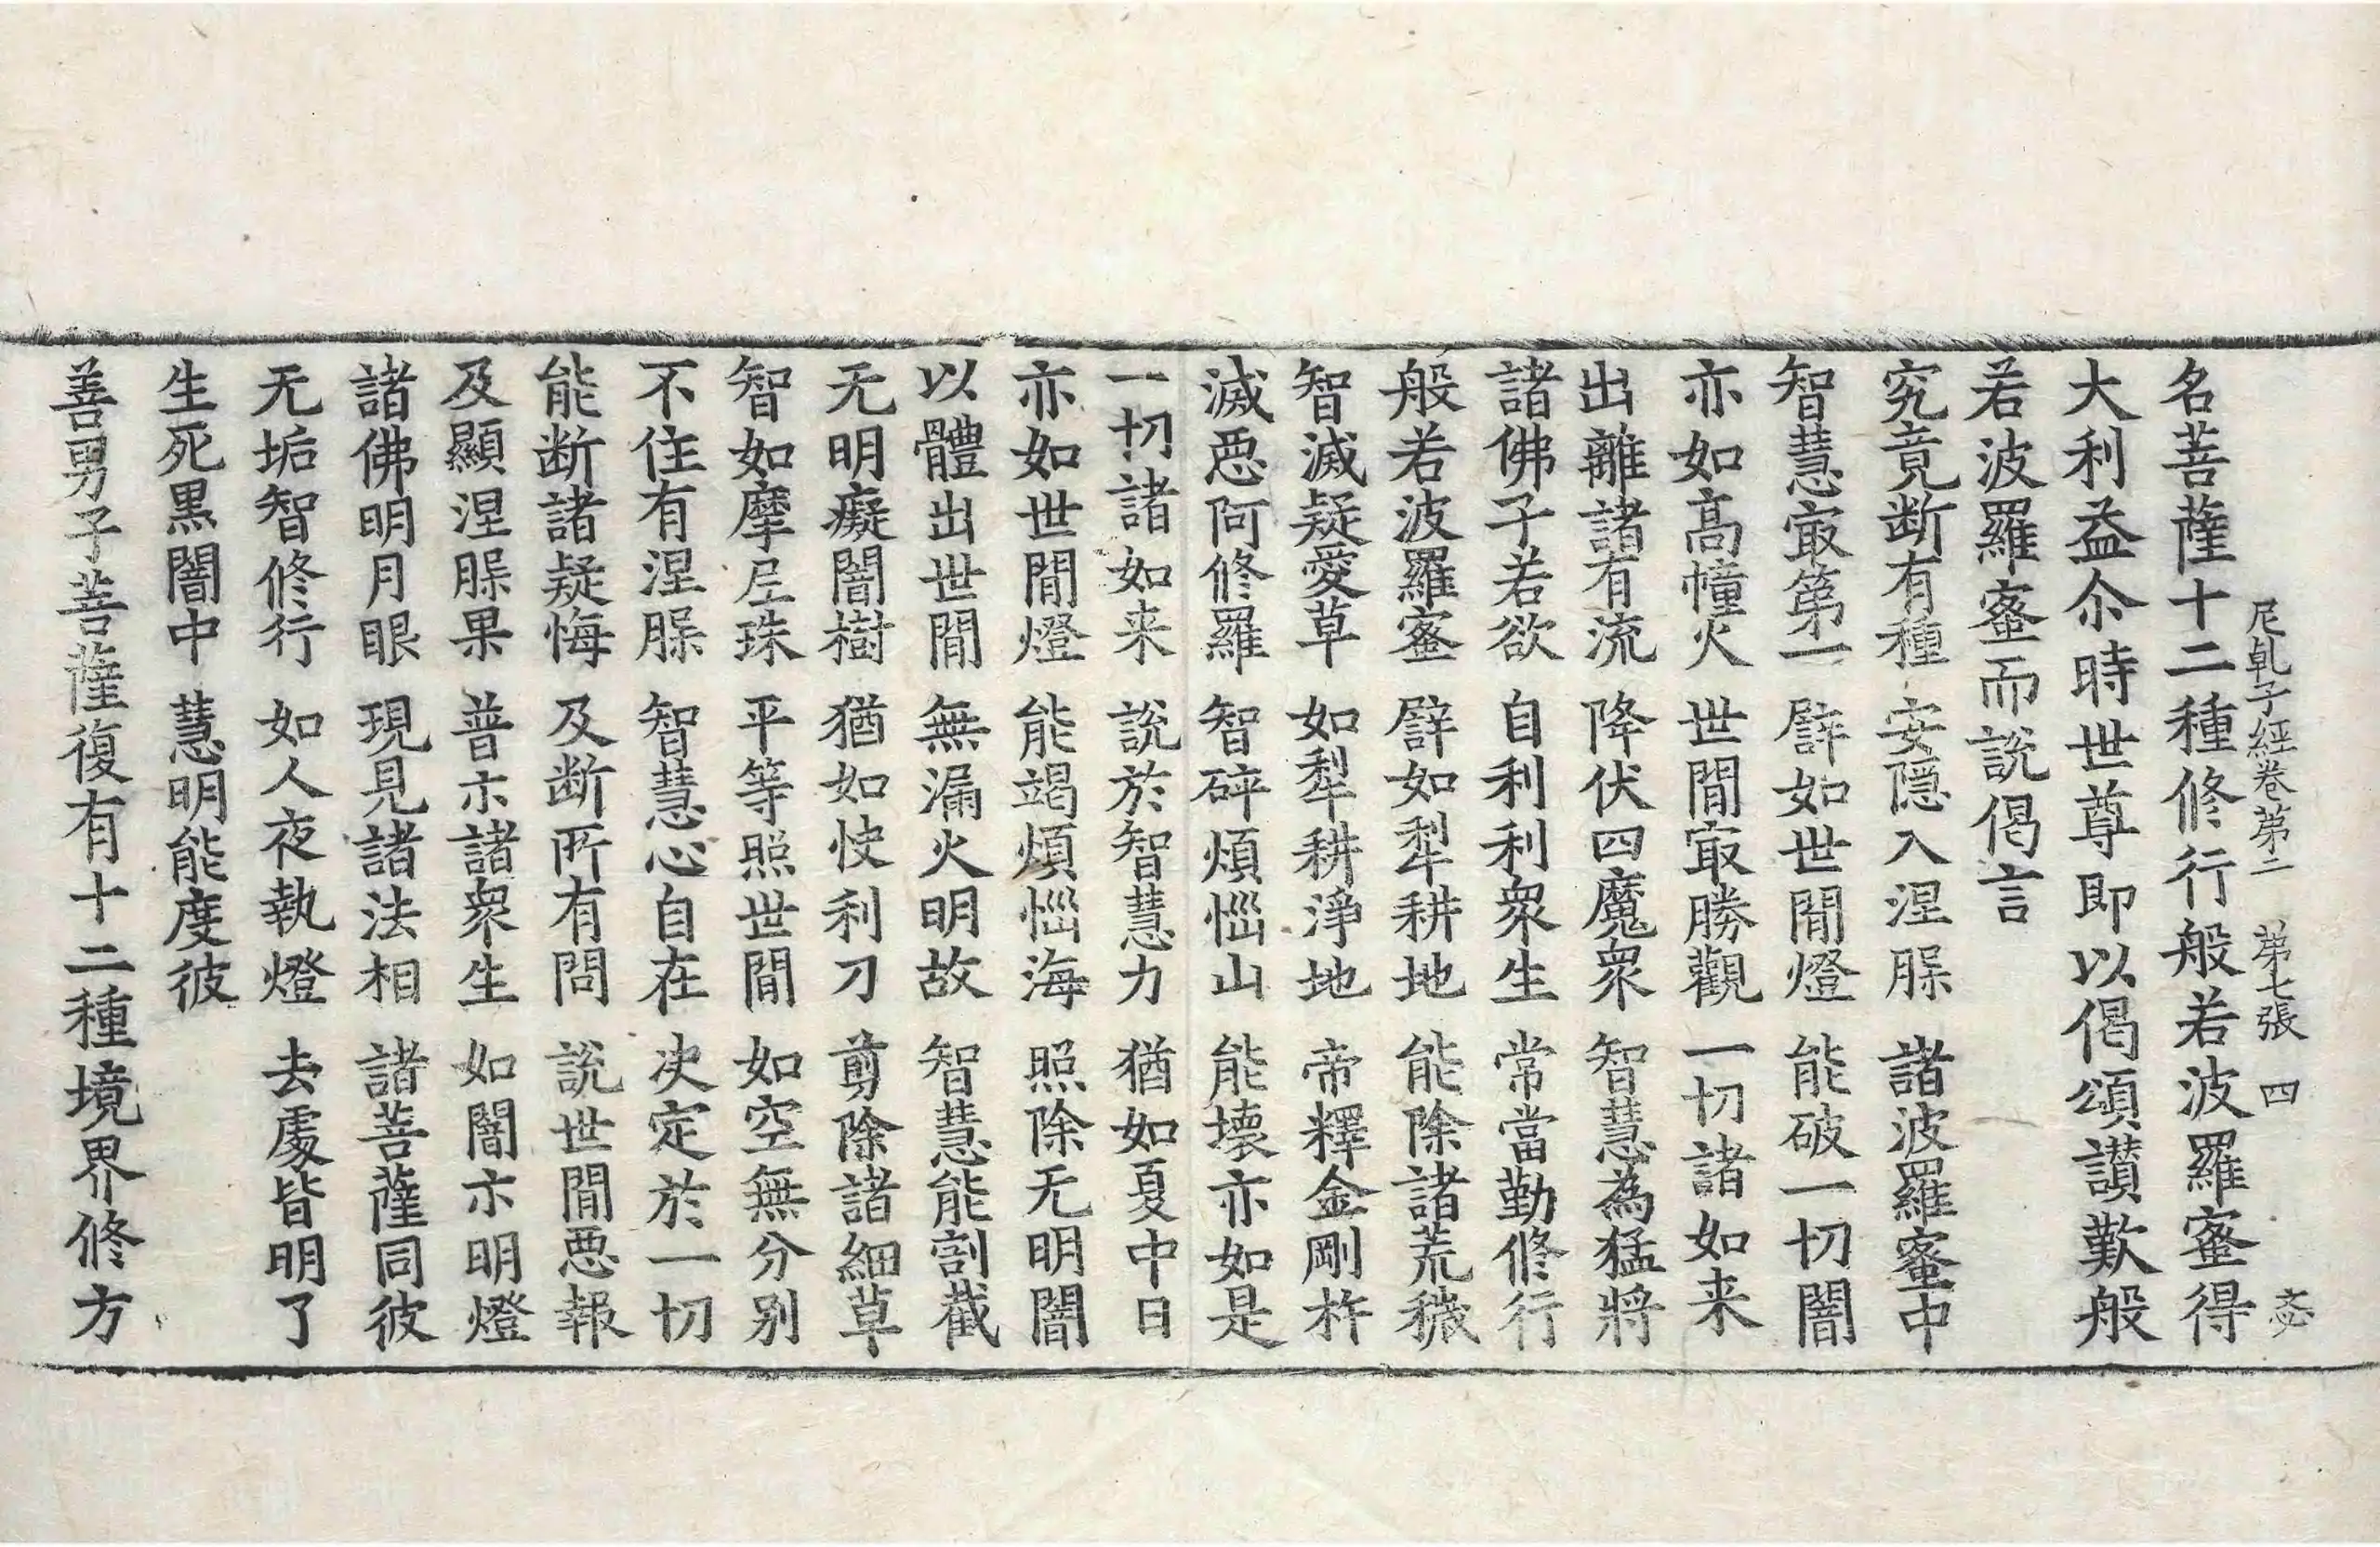 尼乹子經卷第二 第七張 四
名菩薩十二種修行般若波羅蜜得
大利益尒時世尊即以偈頌讃歎般
若波羅蜜而說偈言
究竟断有種 安隠入涅脲 諸波羅蜜中
智慧㝡第一 辟如世間燈 能破一切闇
亦如髙幢火 世間㝡勝觀 一切諸如来
出離諸有流 降伏四魔衆 智慧為猛將
諸佛子若欲 自利利衆生 常當勤修行
般若波羅蜜 辟如犁耕地 能除諸荒穢
智滅疑愛草 如犁耕淨地 帝釋金剛杵
滅惡阿修羅 智碎煩惱山 能壞亦如是
一切諸如来 說於智慧力 猶如夏中日
亦如世間燈 能竭煩惱海 照除无明闇
以體出世間 無漏火明故 智慧能割截
无明癡闇樹 猶如快利刀 剪除諸細草
智如摩尼珠 平等照世間 如空無分別
不住有涅脲 智慧心自在 决定於一切
能断諸疑悔 及断所有問 說世間惡報
及顯涅脲果 普示諸衆生 如闇示明燈
諸佛明月眼 現見諸法相 諸菩薩同彼
无垢智修行 如人夜執燈 去處皆明了
生死黒闇中 慧明能度彼
善男子菩薩復有十二種境界修方